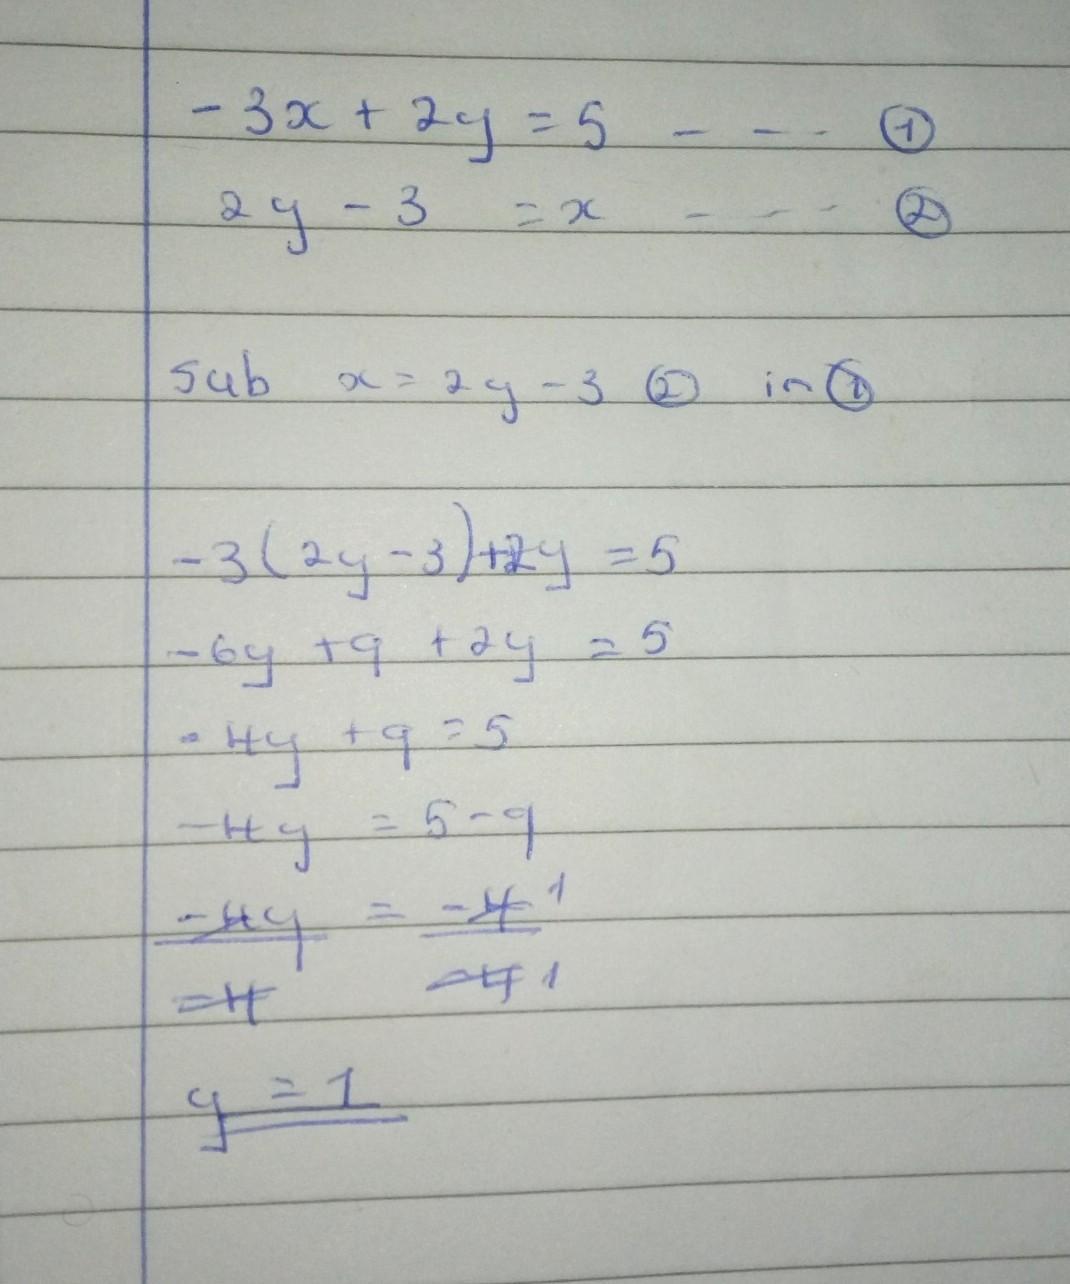 -3x + 2y = 5 - - - ①
2y - 3 = x - - - ②
Sub x = 2y - 3 ② in ①
-3(2y - 3) + 2y = 5
-6y + 9 + 2y = 5
-4y + 9 = 5
-4y = 5 - 9
-4y = -4 1
-4 -4 1
y = 1